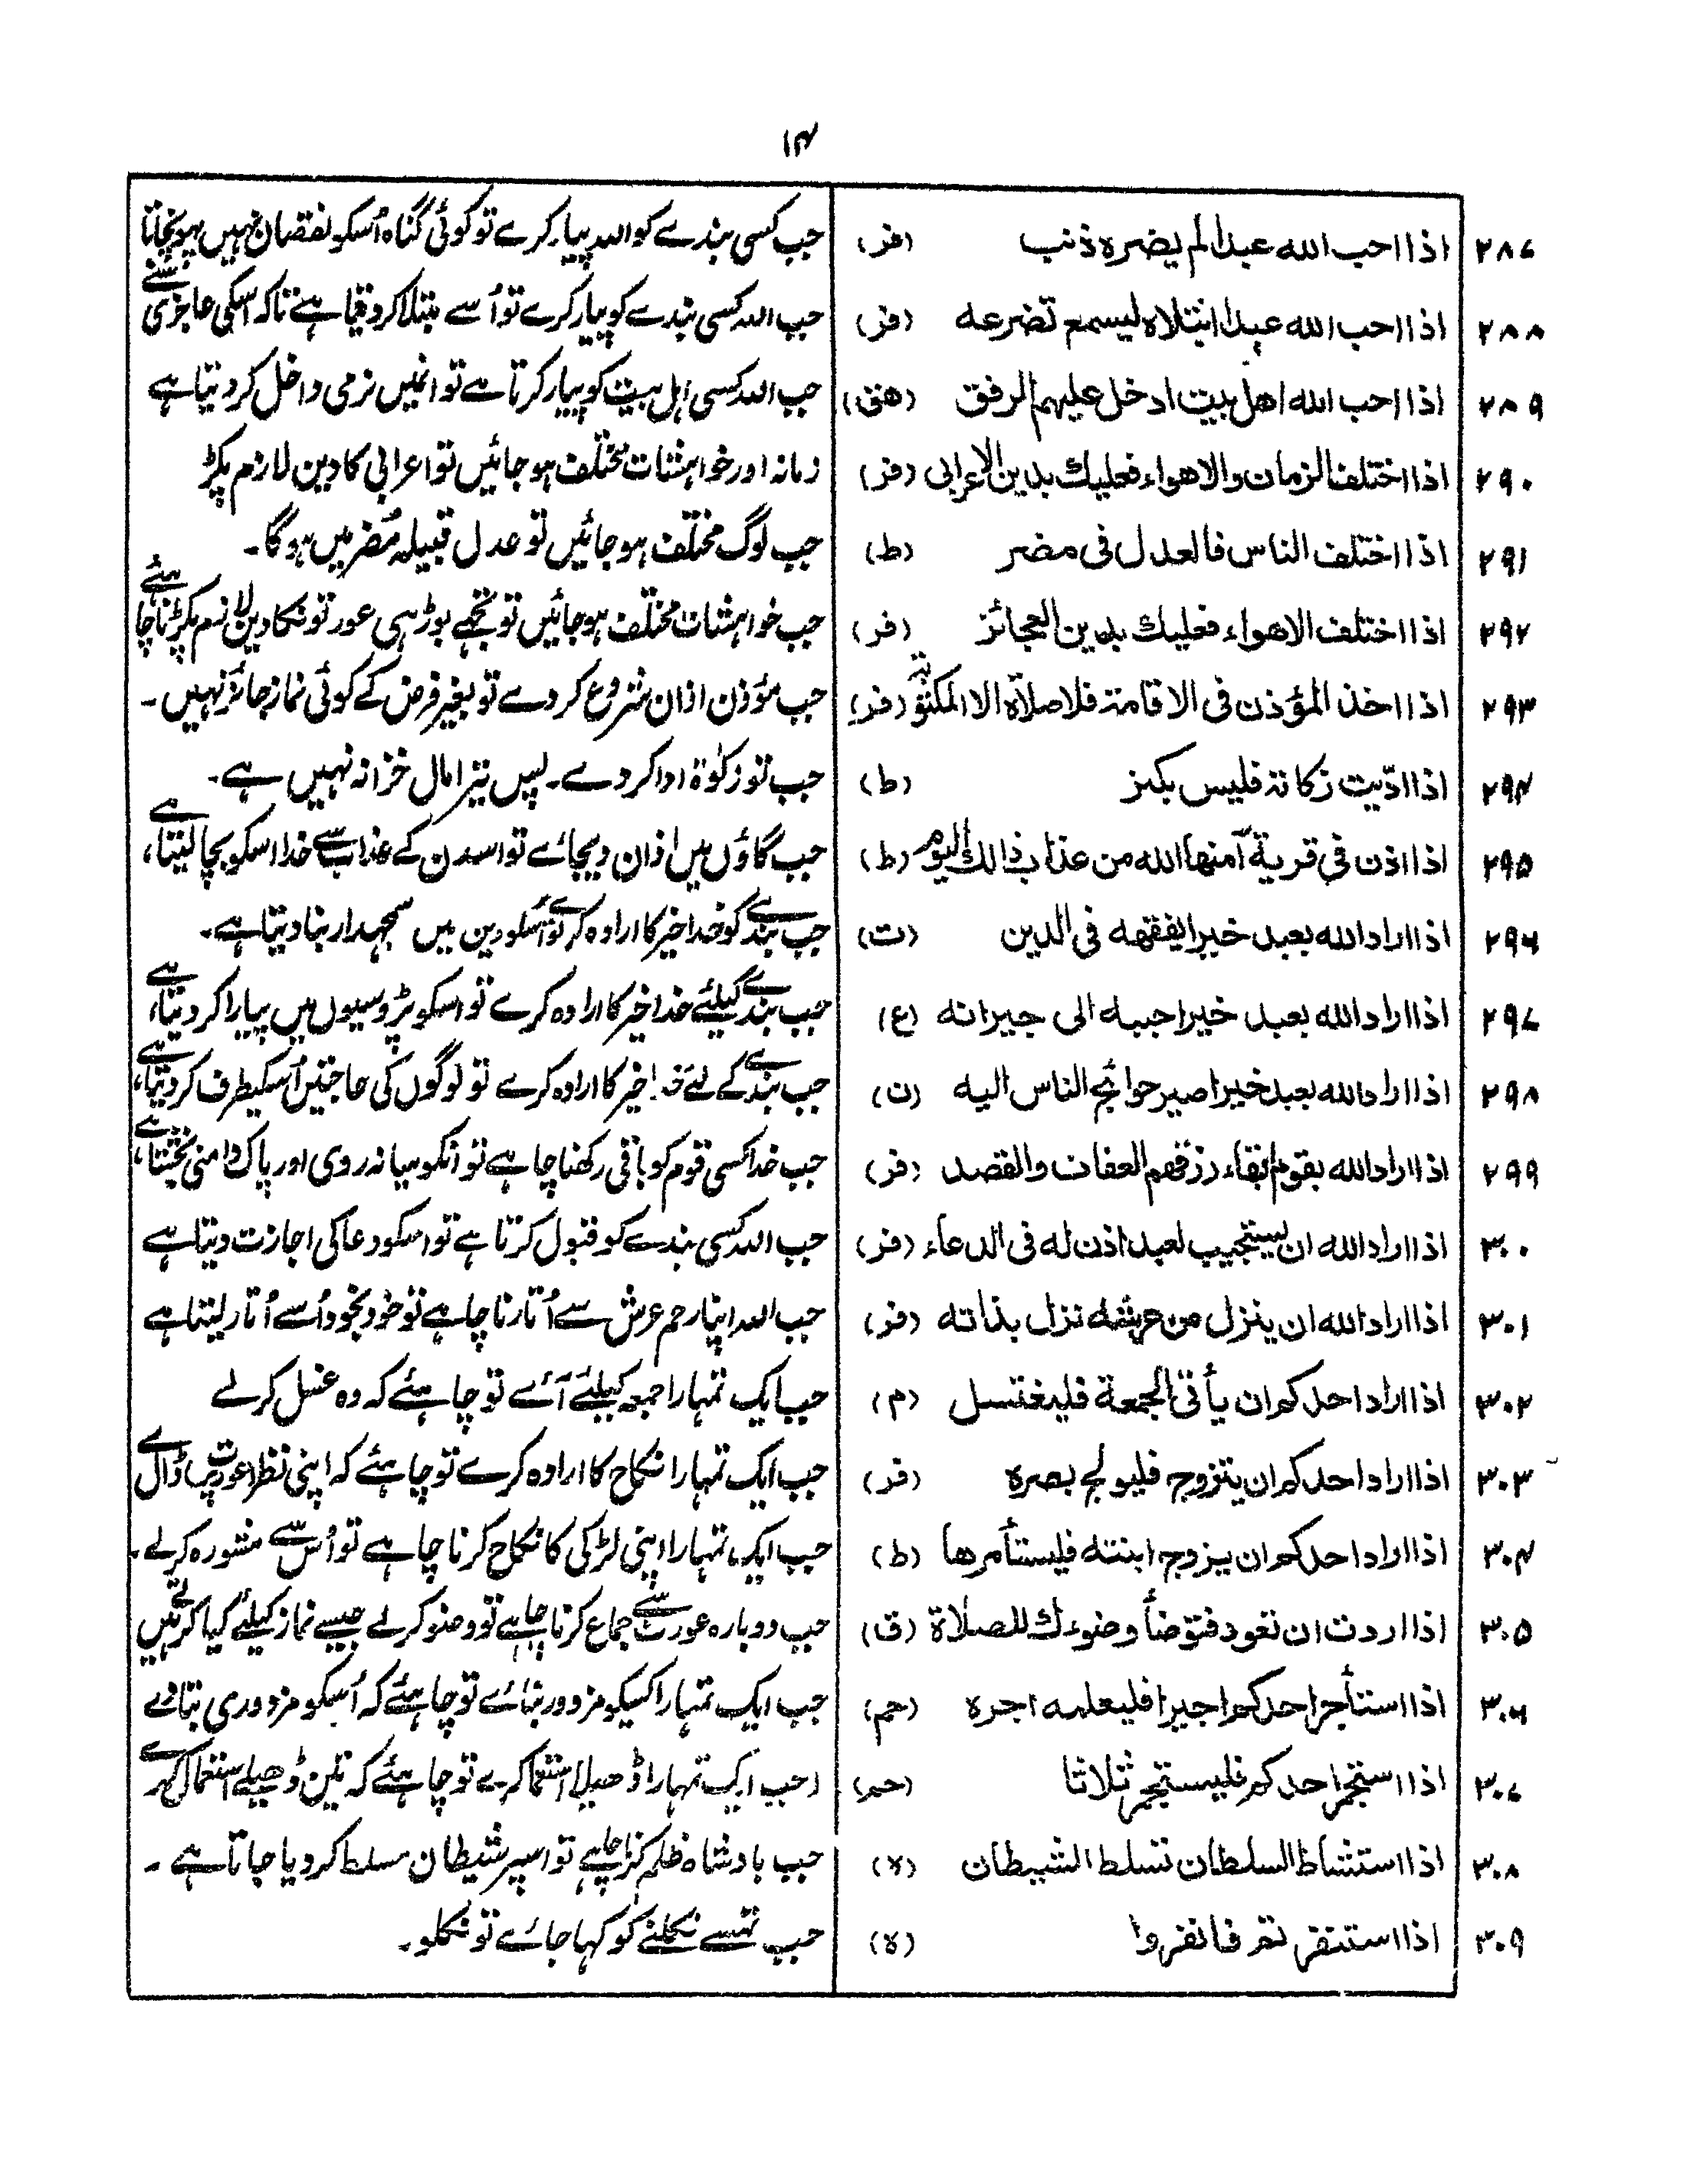 ۱۴
۲۸۷ اذا احب الله عبدا لم یضره ذنب (فر) جب کسی بندے کو اللہ پیار کرے تو کوئی گناہ اُسکو نقصان نہیں پہونچاتا
۲۸۸ اذا احب الله عبدا ابتلاه لیسمع تضرعه (فر) جب اللہ کسی بندے کو پیار کرے تو اُسے مبتلا کر دیتا ہے تاکہ اسکی عاجزی سُنے
۲۸۹ اذا احب الله اهل بیت ادخل علیهم الرفق (هق) جب اللہ کسی اہل بیت کو پیار کرتا ہے تو انمیں نرمی داخل کر دیتا ہے
۲۹۰ اذا اختلف الزمان والاهواء فعلیك بدین الاعرابی (فر) زمانہ اور خواہشات مختلف ہو جائیں تو اعرابی کا دین لازم پکڑ
۲۹۱ اذا اختلف الناس فالعدل فی مضر (ط) جب لوگ مختلف ہو جائیں تو عدل قبیلہ مُضر میں ہوگا۔
۲۹۲ اذا اختلف الاهواء فعلیك بدین العجائز (فر) جب خواہشات مختلف ہو جائیں تو تجھے بوڑہی عورتونکا دین لازم پکڑنا چاہئے
۲۹۳ اذا اخذ المؤذن فی الاقامة فلا صلاة الا المکتوبة (فر) جب مؤذن اذان شروع کر دے تو بغیر فرض کے کوئی نماز جائز نہیں۔
۲۹۴ اذا ادّیت زکاته فلیس بکنز (ط) جب تو زکوٰۃ ادا کر دے۔ پس تیرا مال خزانہ نہیں ہے۔
۲۹۵ اذا اذن فی قریة آمنها الله من عذاب ذالك الیوم (ط) جب گاؤں میں اذان دیجائے تو اسدن کے عذاب سے خدا اسکو بچا لیتا ہے،
۲۹۶ اذا اراد الله بعبد خیرا یفقهه فی الدین (ت) جب بندے کو خدا خیر کا ارادہ کرے تو اُسکو دین میں سمجہدار بنا دیتا ہے۔
۲۹۷ اذا اراد الله بعبد خیرا حببه الی جیرانه (ع) جب بندے کیلئے خدا خیر کا ارادہ کرے تو اسکو پڑوسیوں میں پیارا کر دیتا ہے،
۲۹۸ اذا اراد الله بعبد خیرا صیر حوائج الناس الیه (ن) جب بندے کے لئے خدا خیر کا ارادہ کرے تو لوگوں کی حاجتیں اُسکیطرف کر دیتا ہے،
۲۹۹ اذا اراد الله بقوم ابقاء رزقهم العفاف والقصد (فر) جب خدا کسی قوم کو باقی رکھنا چاہے تو انکو میانہ روی اور پاک دامنی بخشتا ہے،
۳۰۰ اذا اراد الله ان لیستجیب لعبد اذن له فی الدعاء (فر) جب اللہ کسی بندے کو قبول کرتا ہے تو اسکو دعا کی اجازت دیتا ہے
۳۰۱ اذا اراد الله ان ینزل من عرشه نزل بذاته (فر) جب اللہ اپنا رحم عرش سے اُتارنا چاہے تو خود بخود اُسے اُتار لیتا ہے
۳۰۲ اذا اراد احدکم ان یأتی الجمعة فلیغتسل (م) جب ایک تمہارا جمعہ کیلئے آئے تو چاہئے کہ وہ غسل کرلے
۳۰۳ اذا اراد احدکم ان یتزوج فلیولج بصره (فر) جب ایک تمہارا نکاح کا ارادہ کرے تو چاہئے کہ اپنی نظر عورت پر ڈال لے
۳۰۴ اذا اراد احدکم ان یزوج ابنته فلیستأمرها (ط) جب ایک تمہارا اپنی لڑکی کا نکاح کرنا چاہے تو اُس سے مشورہ کرلے۔
۳۰۵ اذا اردت ان تعود فتوضأ وضوءك للصلاة (ق) جب دوبارہ عورت سے جماع کرنا چاہے تو وضو کرلے جیسے نماز کیلئے کیا کرتے ہیں
۳۰۶ اذا استأجر احدکم اجیرا فلیعلمه اجره (حم) جب ایک تمہارا کسیکو مزدور بنائے تو چاہئے کہ اُسکو مزدوری بتادے
۳۰۷ اذا استجمر احدکم فلیستجمر ثلاثا (حم) جب ایک تمہارا ڈھیلا استعمال کرے تو چاہئے کہ تین ڈھیلے استعمال کرے
۳۰۸ اذا استشاط السلطان تسلط الشیطان (ﻻ) جب بادشاہ ظلم کرنا چاہے تو اسپر شیطان مسلط کر دیا جاتا ہے۔
۳۰۹ اذا استنفرتم فانفروا (ﻻ) جب تمسے نکلنے کو کہا جائے تو نکلو۔